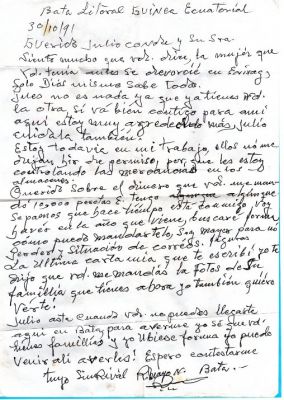 Bata Litoral Guinea Ecuatorial
30/10/91
Querido Julio y Su Sra.
Siento mucho que vd. dice, la mujer que
vd. tenia antes se divorció en
Solo Dios mismo Sabe todo.
pues no es nada ya que ya tienes
la otra si vá bien contigo para mi
aqui estoy muy agredecido mas, Julio
cuidala tambien!
Estoy todavia en mi trabajo, ellos no me
dejan hir de permiso, por que les estoy
controlando las mercancias en los
almacenes:
Querido Sobre el dinero que vd. me
10,000 pesetas E. tengo aunque
Sepamos que hace tiempo este conmigo, voy
haver en el año que viene, buscaré forma
como puedo mandartelo, Soy mayor para no
perder Situación de correos.
La Ultima carta mia que te escribi yo te
dije que vd. me mandas la fotos de Su
famillia que tienes ahora yo tambien quiero
verte!
Julio aste Cuando vds no puedes llegaste
aqui en Bata, para averme yo Sé que vd.
tienes famillias y yo Ubiese forma yo puedo
Venir alli averlos! Espero contestarme
tuyo SinRival Bata.-